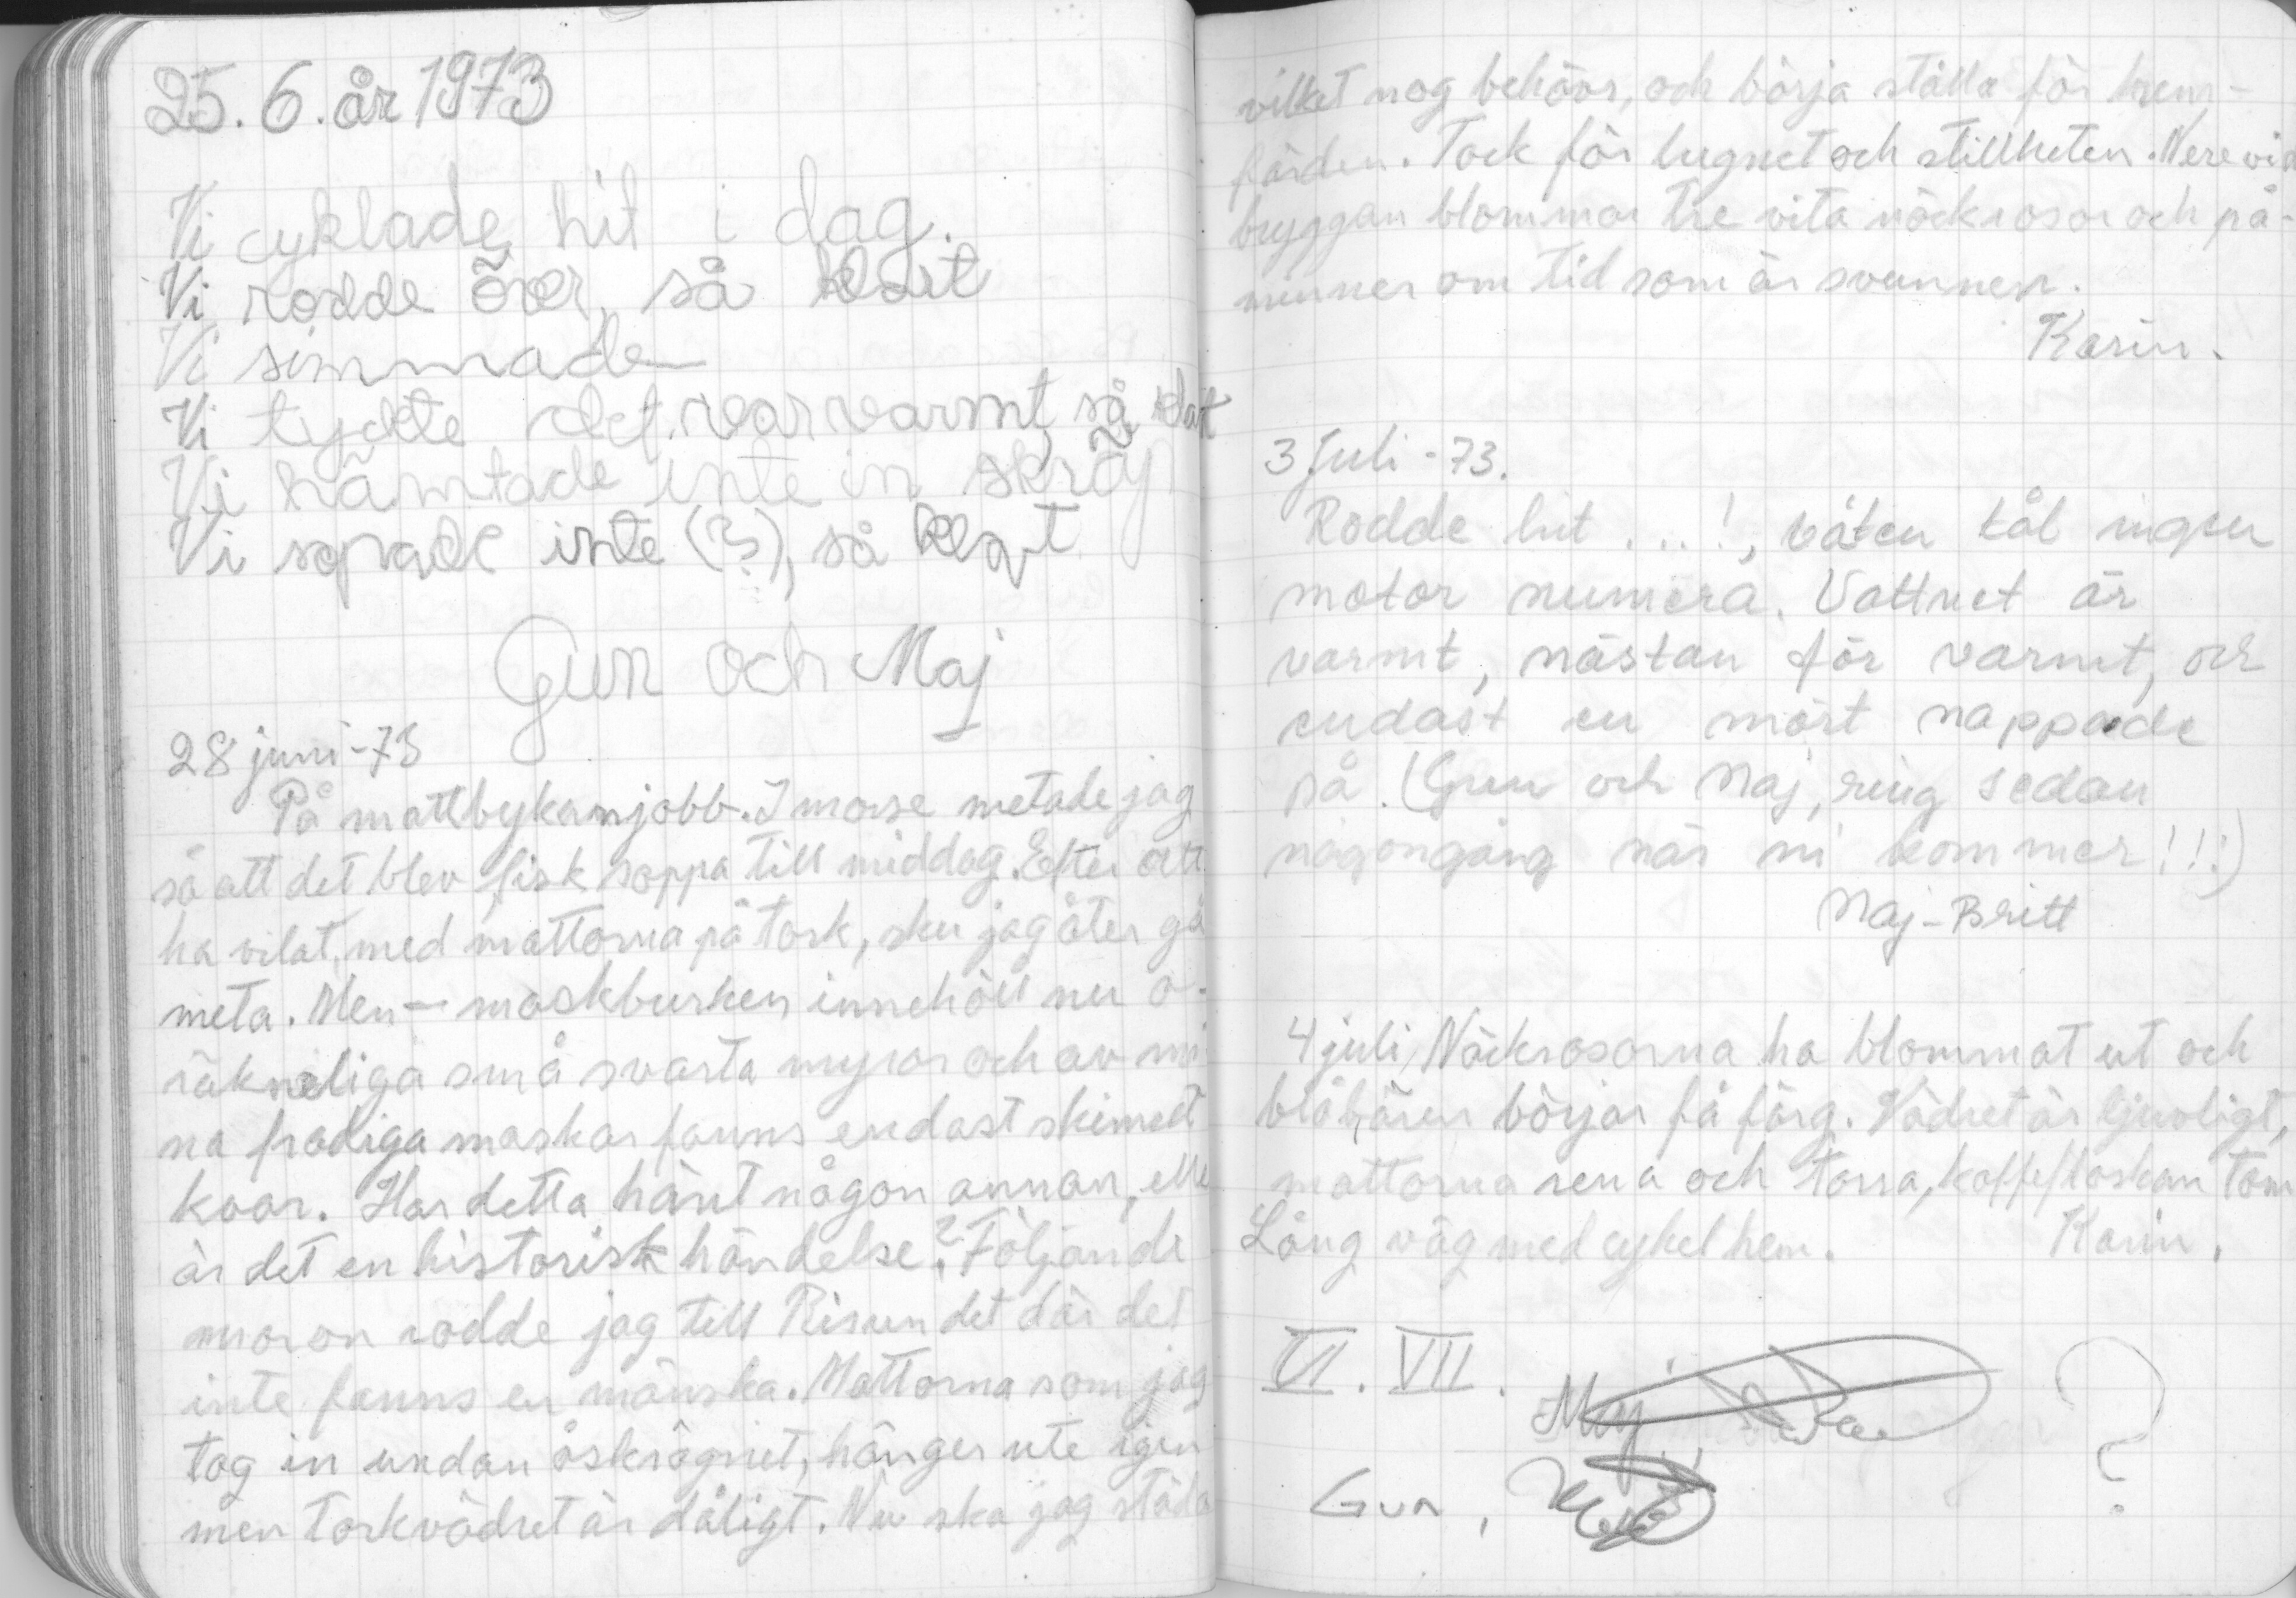 25. 6. år 1973
Vi cyklade hit i dag.
Vi rodde över, så klart
Vi simmade
Vi tyckte det var varmt, så klart
Vi hämtade inte in skräp
Vi sopade inte (?), så klart
Gun och Maj
28 juni -73
På mattbykarnjobb. I morse metade jag
så att det blev fisksoppa till middag. Efter att
ha vilat, med mattorna på tork, sku jag åter gå
meta. Men — maskburken innehöll nu o-
räkneliga små svarta myror och av mi
na frodiga maskar fanns endast skinnet
kvar. Har detta hänt någon annan, elle
är det en historisk händelse? Följande
moron rodde jag till Risundet där det
inte fanns en mänska. Mattorna som jag
tog in undan åskrägnet, hänger ute igen
men torkvädret är dåligt. Nu ska jag städa
vilket nog behövs, och börja ställa för hem-
färden. Tack för lugnet och stillheten. Nere vid
bryggan blommar tre vita näckrosor och på-
minner om tid som är svunnen.
Karin.
3 Juli -73.
Rodde hit . . . !, båten tål ingen
motor numera. Vattnet är
varmt, nästan för varmt, och
endast en mört nappade
på. (Gun och Maj, ring sedan
någongång när ni kommer!!!)
Maj-Britt
4 juli, Näckrosorna ha blommat ut och
blåbären börjar få färg. Vädret är ljuvligt,
mattorna rena och torra, kaffeflaskan tom
Lång väg med cykel hem. Karin.
VI. VII.
Maj ?
Gun,